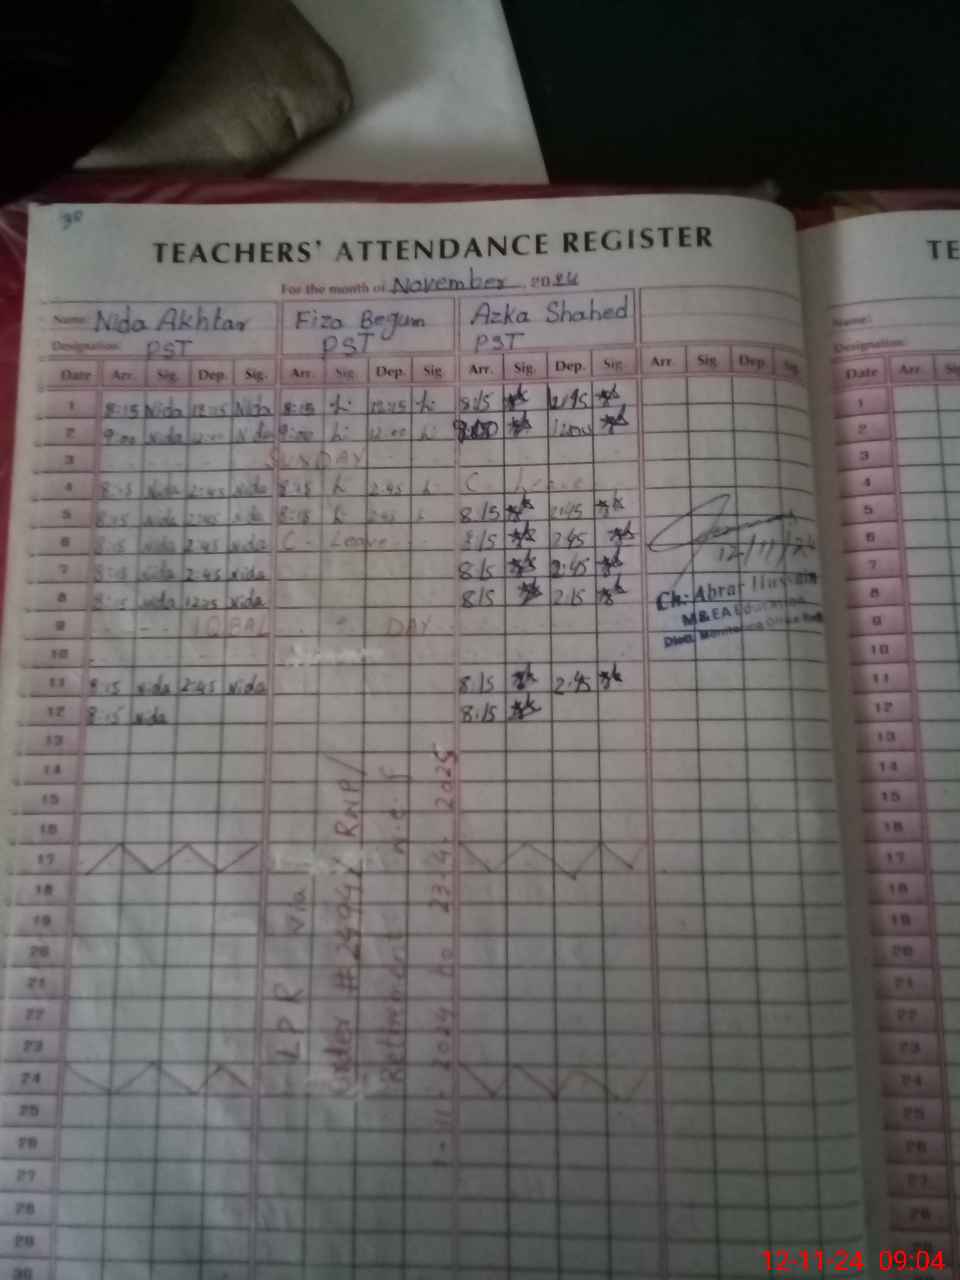 30
TEACHERS' ATTENDANCE REGISTER
TE
For the month of November, 2024
Name: Nida Akhtar Fiza Begum Azka Shahed
Name:
Designation: PST PST PST
Designation:
Date Arr. Sig. Dep. Sig. Arr. Sig. Dep. Sig. Arr. Sig. Dep. Sig. Arr. Sig. Dep. Sig.
Date Arr.
1 8:15 Nida 12:15 Nida 8:15 12:15 8:15
2 9:00 Nida 12:00 Nida 9:00 12:00 12:00
3 SUNDAY
4 8:15 Nida 2:45 Nida 8:15 2:45 C. Leave
5 8:15 Nida 2:45 Nida 8:15 2:45 8:15 2:45
6 8:15 Nida 2:45 Nida C. Leave 8:15 2:45
7 8:15 Nida 2:45 Nida 8:15 2:45
8 8:15 Nida 12:15 Nida 8:15 2:15
9 IQBAL DAY
10
11 8:15 Nida 2:45 Nida 8:15 2:45
12 8:15 Nida 8:15
13
14
15
16
17
18
19
20
21
22
23
24
25
26
27
28
29
30
12/11/24
Ch: Abrar Hussain
M&EA Education
Distt. Monitoring Office
LPR via
order # RWP/
Retirement w.e.f
1-11-2024 to 23-4-2025
1
2
3
4
5
6
7
8
9
10
11
12
13
14
15
16
17
18
19
20
21
22
23
24
25
26
27
28
12-11-24 09:04